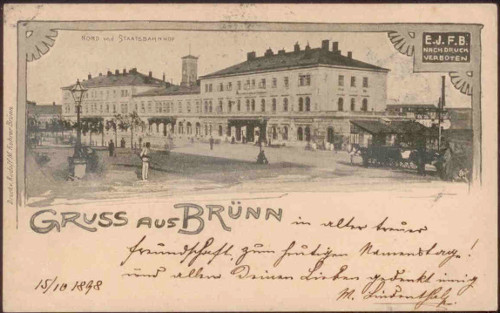 NORD und STAATSBAHNHOF
E.J.F.B.
NACHDRUCK
VERBOTEN
GRUSS AUS BRÜNN
in alter treuer
Freundschaft, zum heutigen Namenstage!
und allen Deinen Lieben gedenkt innig
15/10 1898
M. Lindenthal